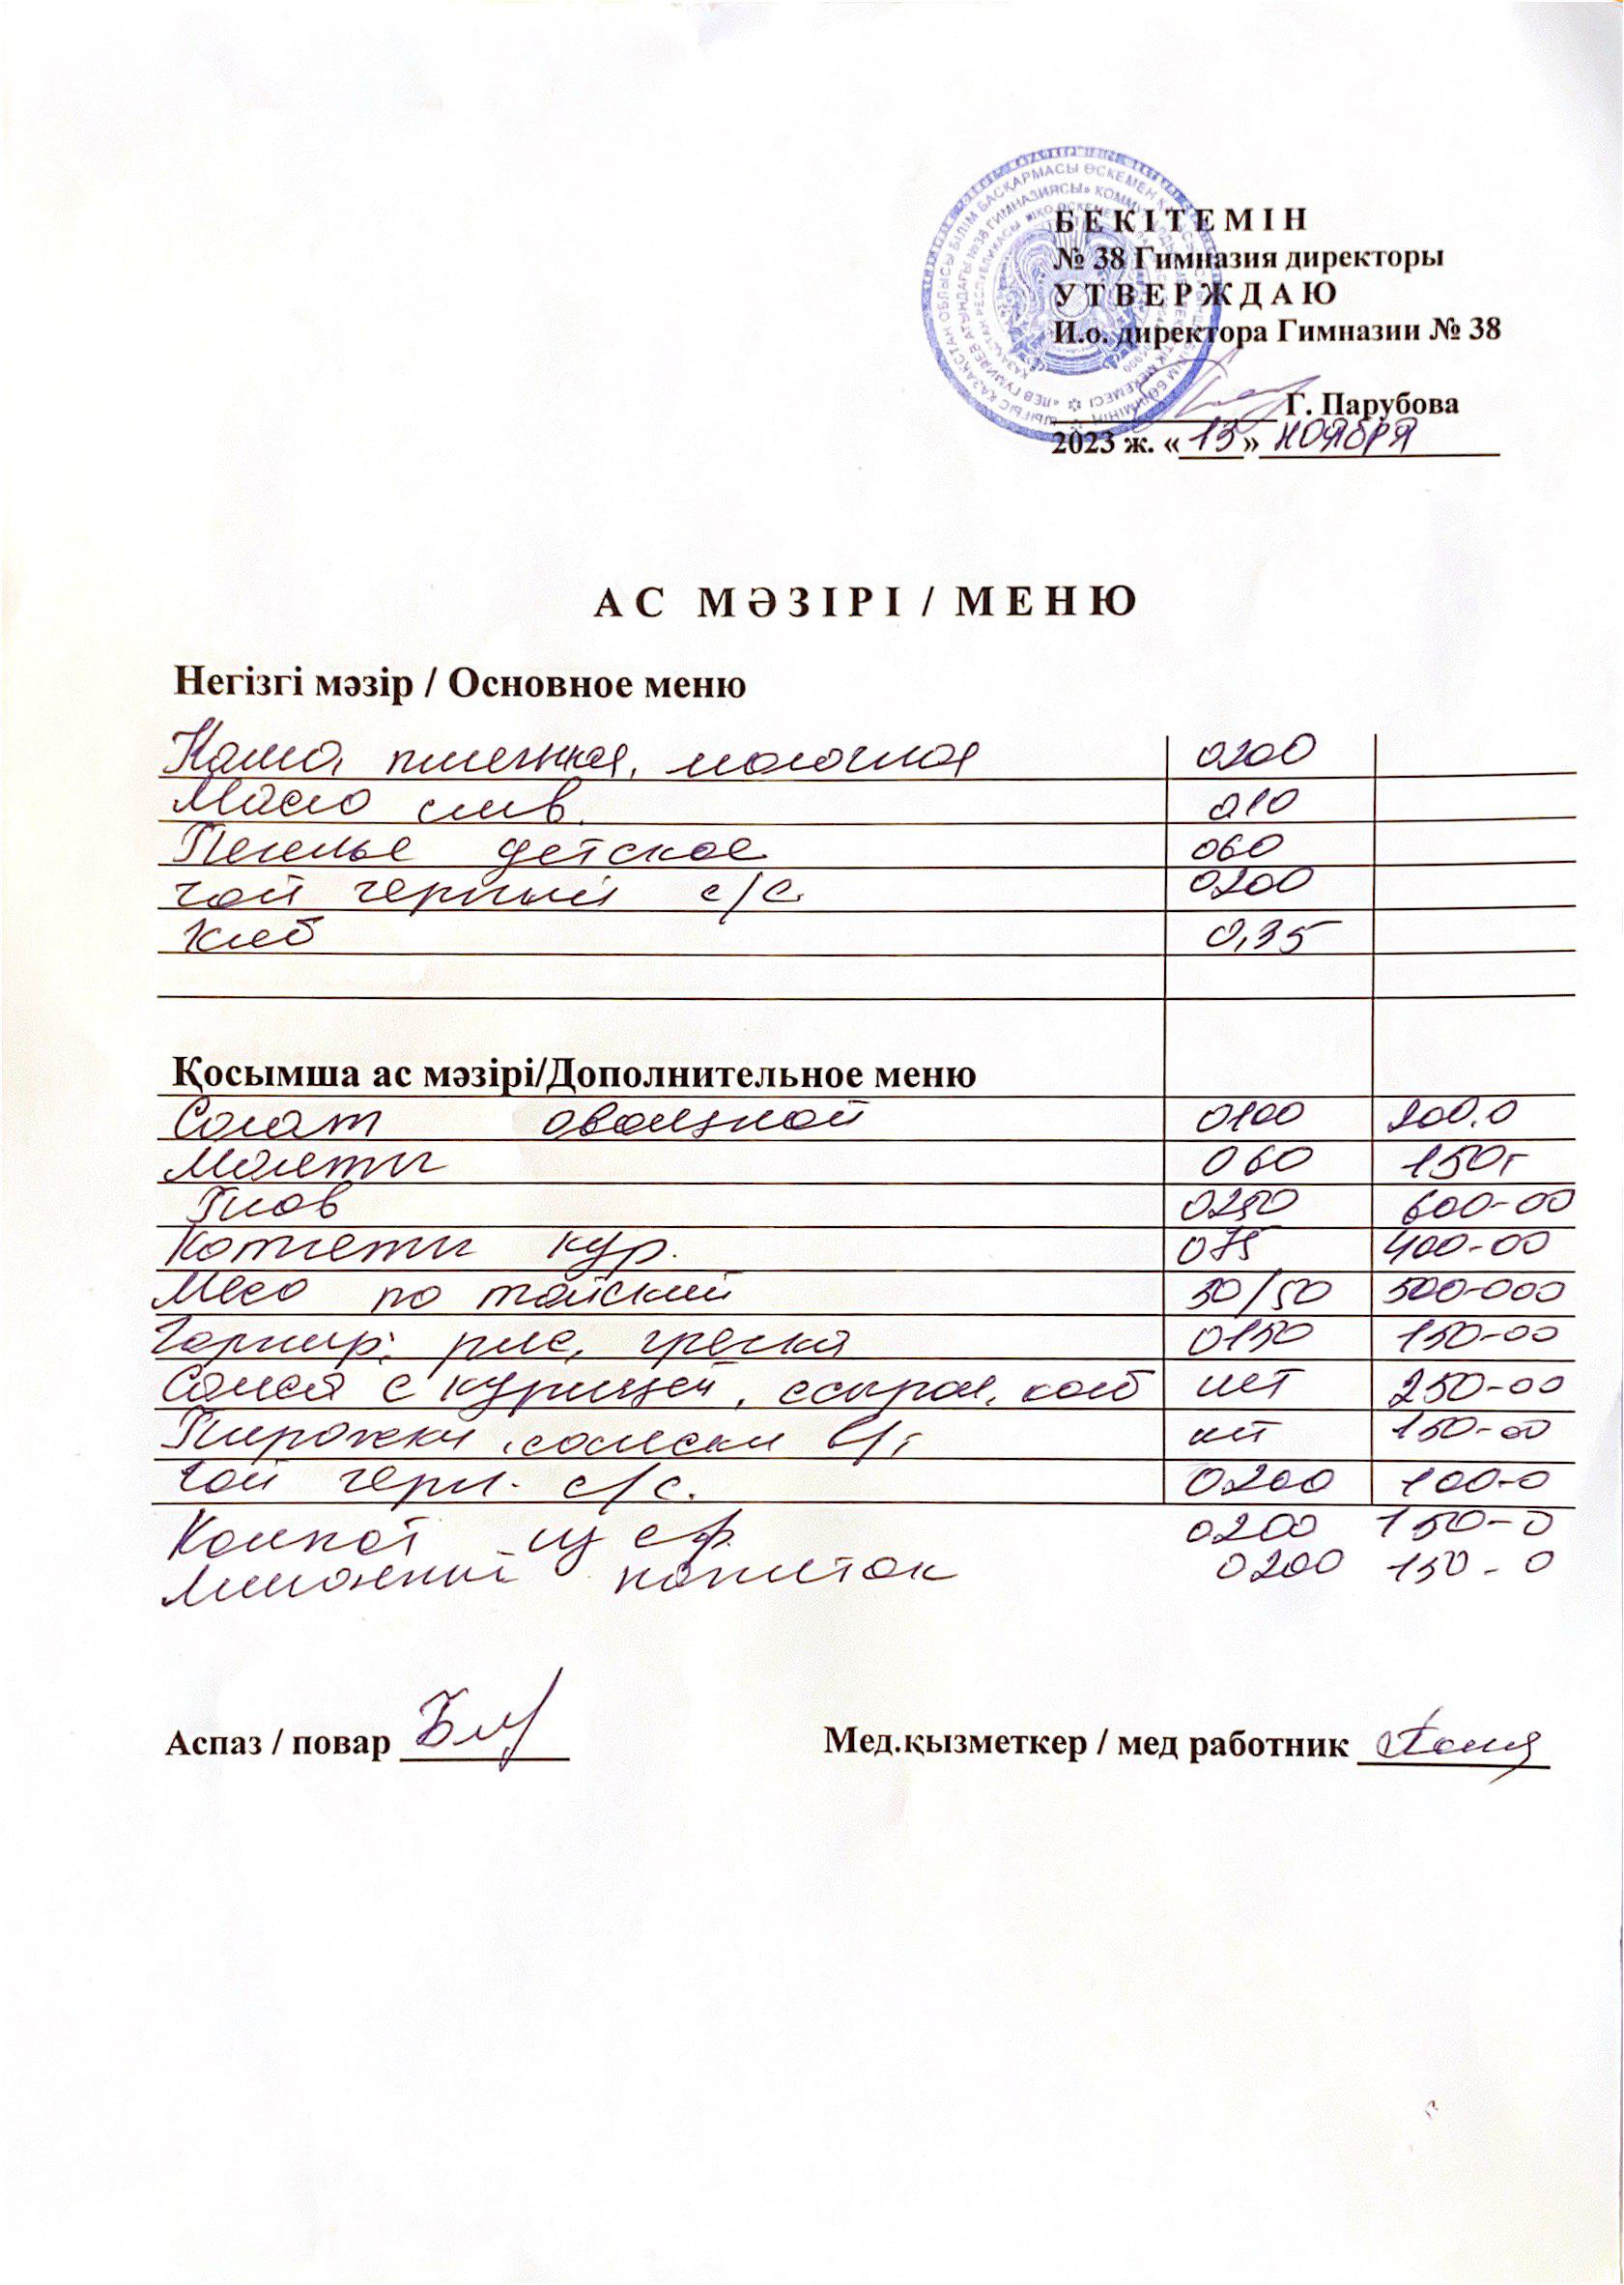 БЕКІТЕМІН
№ 38 Гимназия директоры
УТВЕРЖДАЮ
И.о. директора Гимназии № 38
Г. Парубова
2023 ж. «13» НОЯБРЯ
АС МӘЗІРІ / МЕНЮ
Негізгі мәзір / Основное меню
Каша, пшенная, молочная 0200
Масло слив. 010
Печенье детское 060
Чай черный с/с. 0200
Хлеб 0,35
Қосымша ас мәзірі/Дополнительное меню
Салат овощной 0100 200.0
Манты 060 150г
Плов 0250 600-00
Котлеты кур. 075 400-00
Мясо по тайский 50/50 500-000
Гарнир: рис, гречка 0150 150-00
Самса с курицей, ссыром, колб шт 250-00
Пирожки, сосиски в/т шт 150-00
Чай черн. с/с. 0200 100-0
Компот из сф. 0200 150-0
Лимонный напиток 0200 150-0
Аспаз / повар
Мед.қызметкер / мед работник